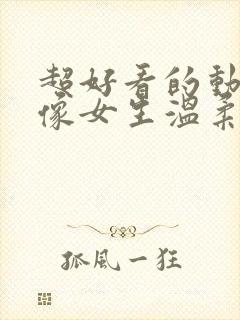 超好看的動
像女生溫柔
孤風一狂